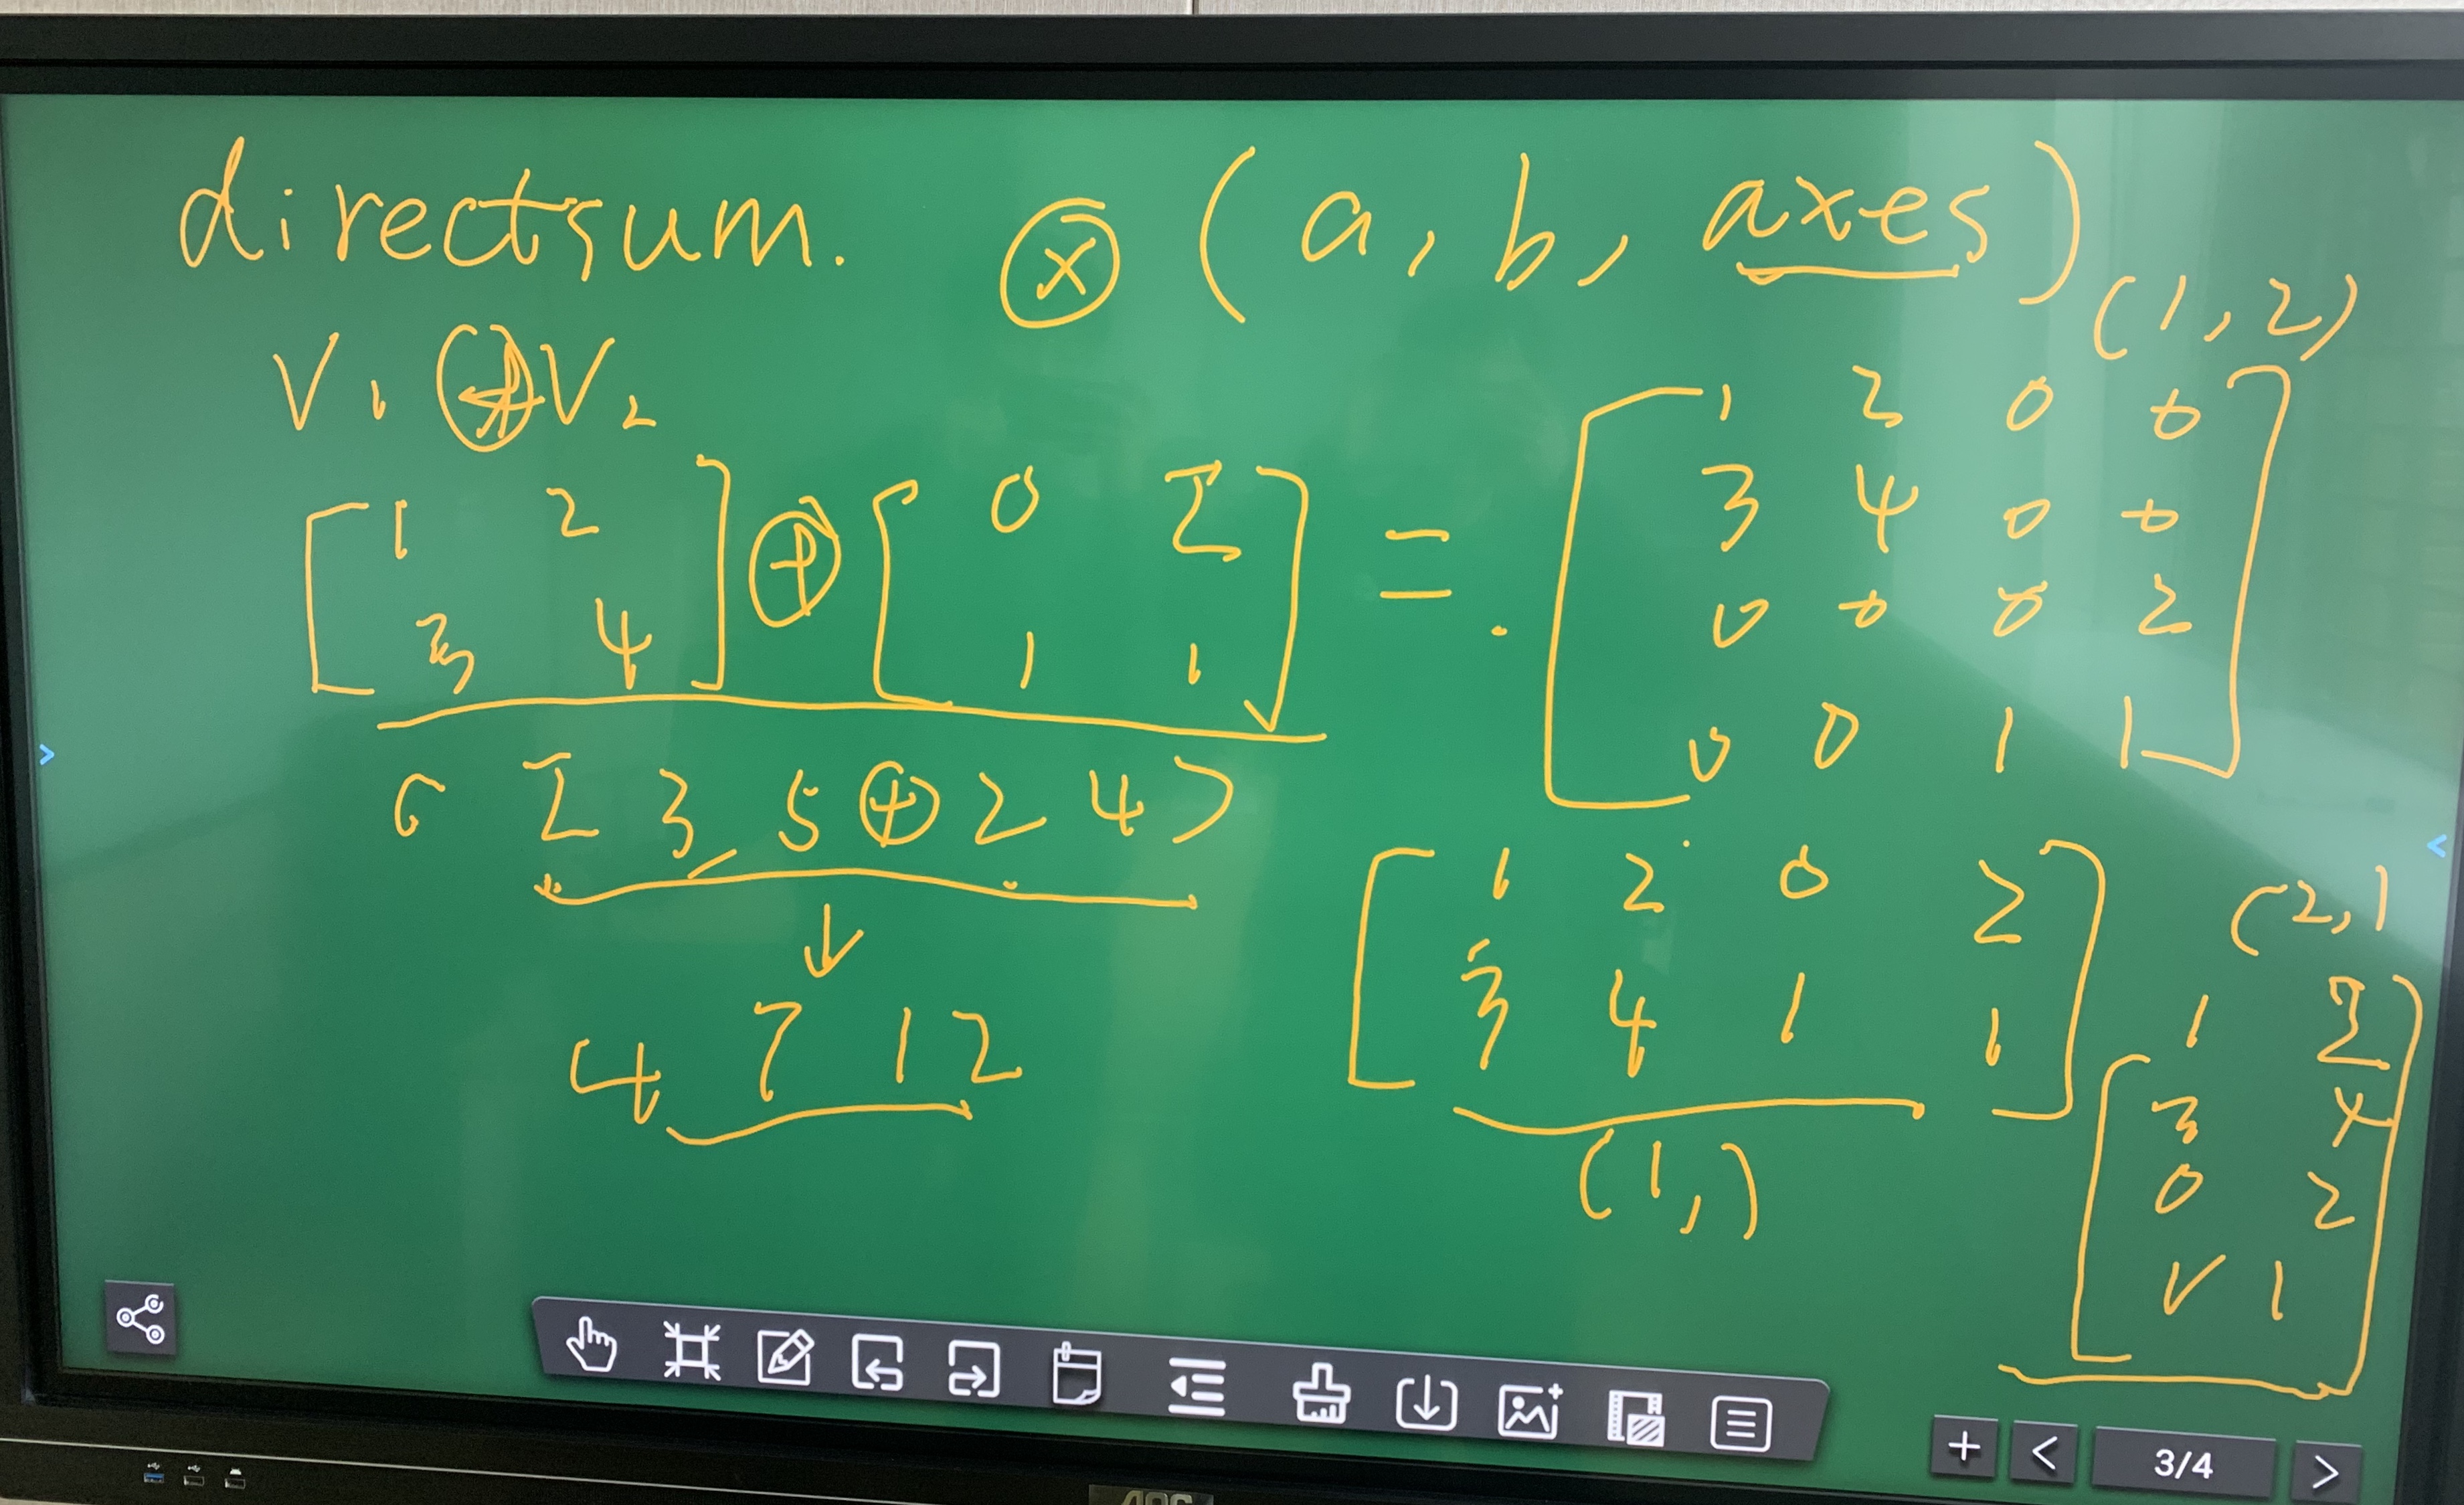 directsum. ⊗ (a, b, axes)
(1, 2)
V₁ ⊕ V₂
[1 2
3 4] ⊕ [0 2
1 1] = [1 2 0 0
3 4 0 0
0 0 0 2
0 0 1 1]
2 3 5 ⊕ 2 4)
↓
4 7 12
[1 2 0 2
3 4 1 1]
(1,)
(2,1
[1 2
3 4
0 2
1]
3/4
AOC